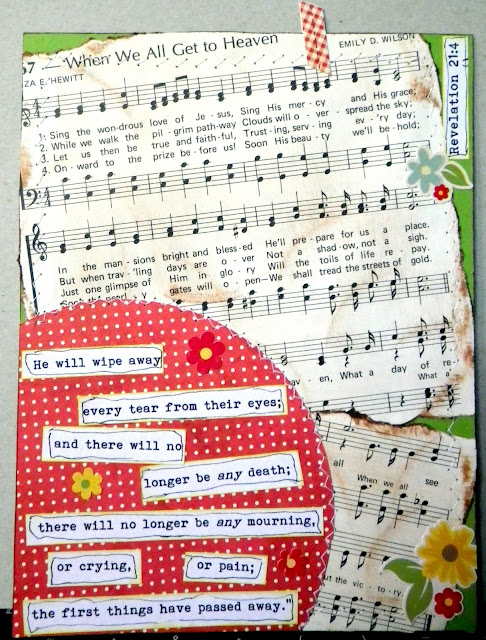 37 When We All Get to Heaven
ZA E. HEWITT
EMILY D. WILSON
Revelation 21:4
1. Sing the won-drous love of Je - sus, Sing His mer - cy and His grace;
2. While we walk the pil - grim path-way Clouds will o - ver - spread the sky;
3. Let us then be true and faith-ful, Trust-ing, serv - ing ev - 'ry day;
4. On - ward to the prize be - fore us! Soon His beau - ty we'll be - hold;
In the man - sions bright and bless - ed He'll pre - pare for us a place.
But when trav - 'ling days are o - ver Not a shad-ow, not a sigh.
Just one glimpse of Him in glo - ry Will the toils of life re - pay.
gates will o - pen—We shall tread the streets of gold.
av - en, What a day of re-
What a
all see
When we all
ut the vic - to - ry.
He will wipe away
every tear from their eyes;
and there will no
longer be any death;
there will no longer be any mourning,
or crying, or pain;
the first things have passed away."